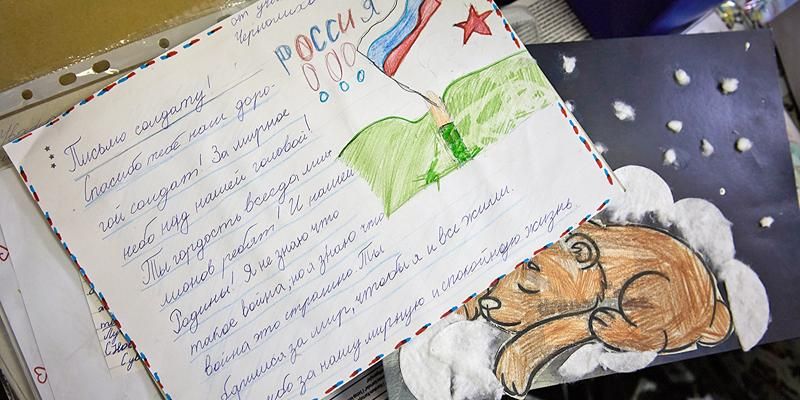 от уч
Черномихо
РОССИЯ
Письмо солдату!
Спасибо тебе наш доро-
гой солдат! За мирное
небо над нашей головой!
Ты гордость всегда ми-
лионов ребят! И нашей
Родины! Я не знаю что
такое война, но я знаю что
война это страшно. Ты
за мир, чтобы я и все жили.
за нашу мирную и спокойную жизнь.